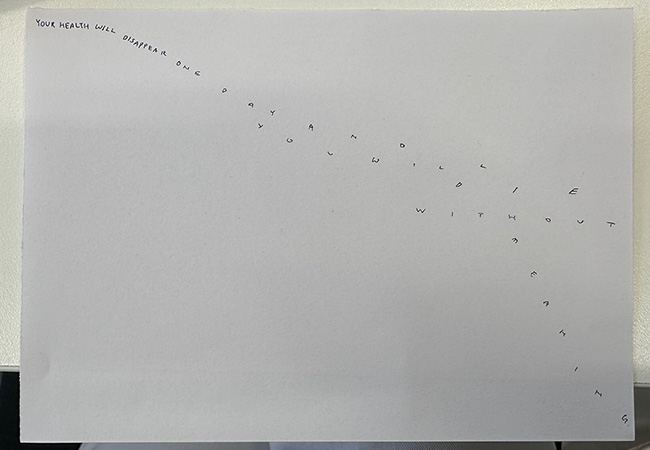 YOUR HEALTH WILL DISAPPEAR ONE DAY AND
YOU WILL
DIE
WITHOUT
MEANING